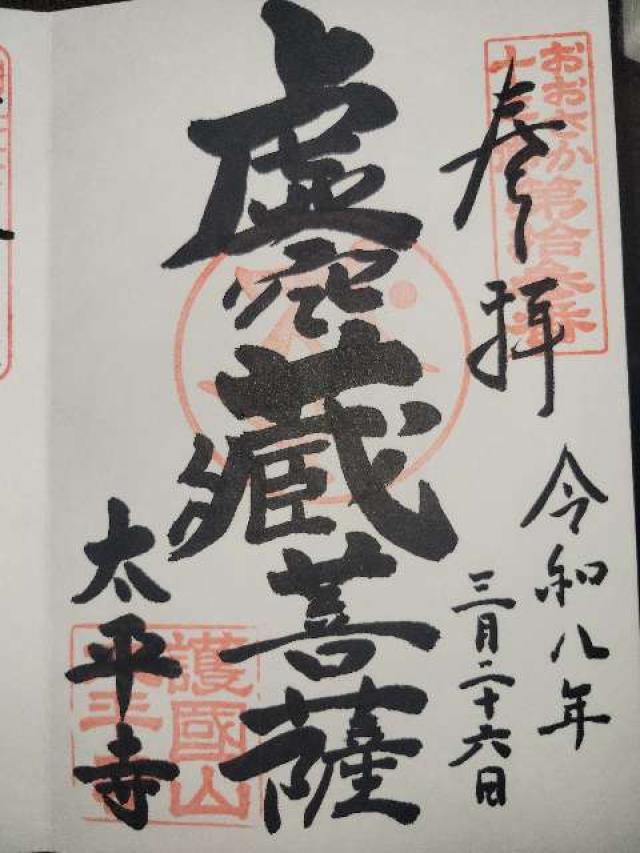 おおさか
第拾参番
奉拝
令和八年
三月二十六日
虚空藏菩薩
護國山
太平寺